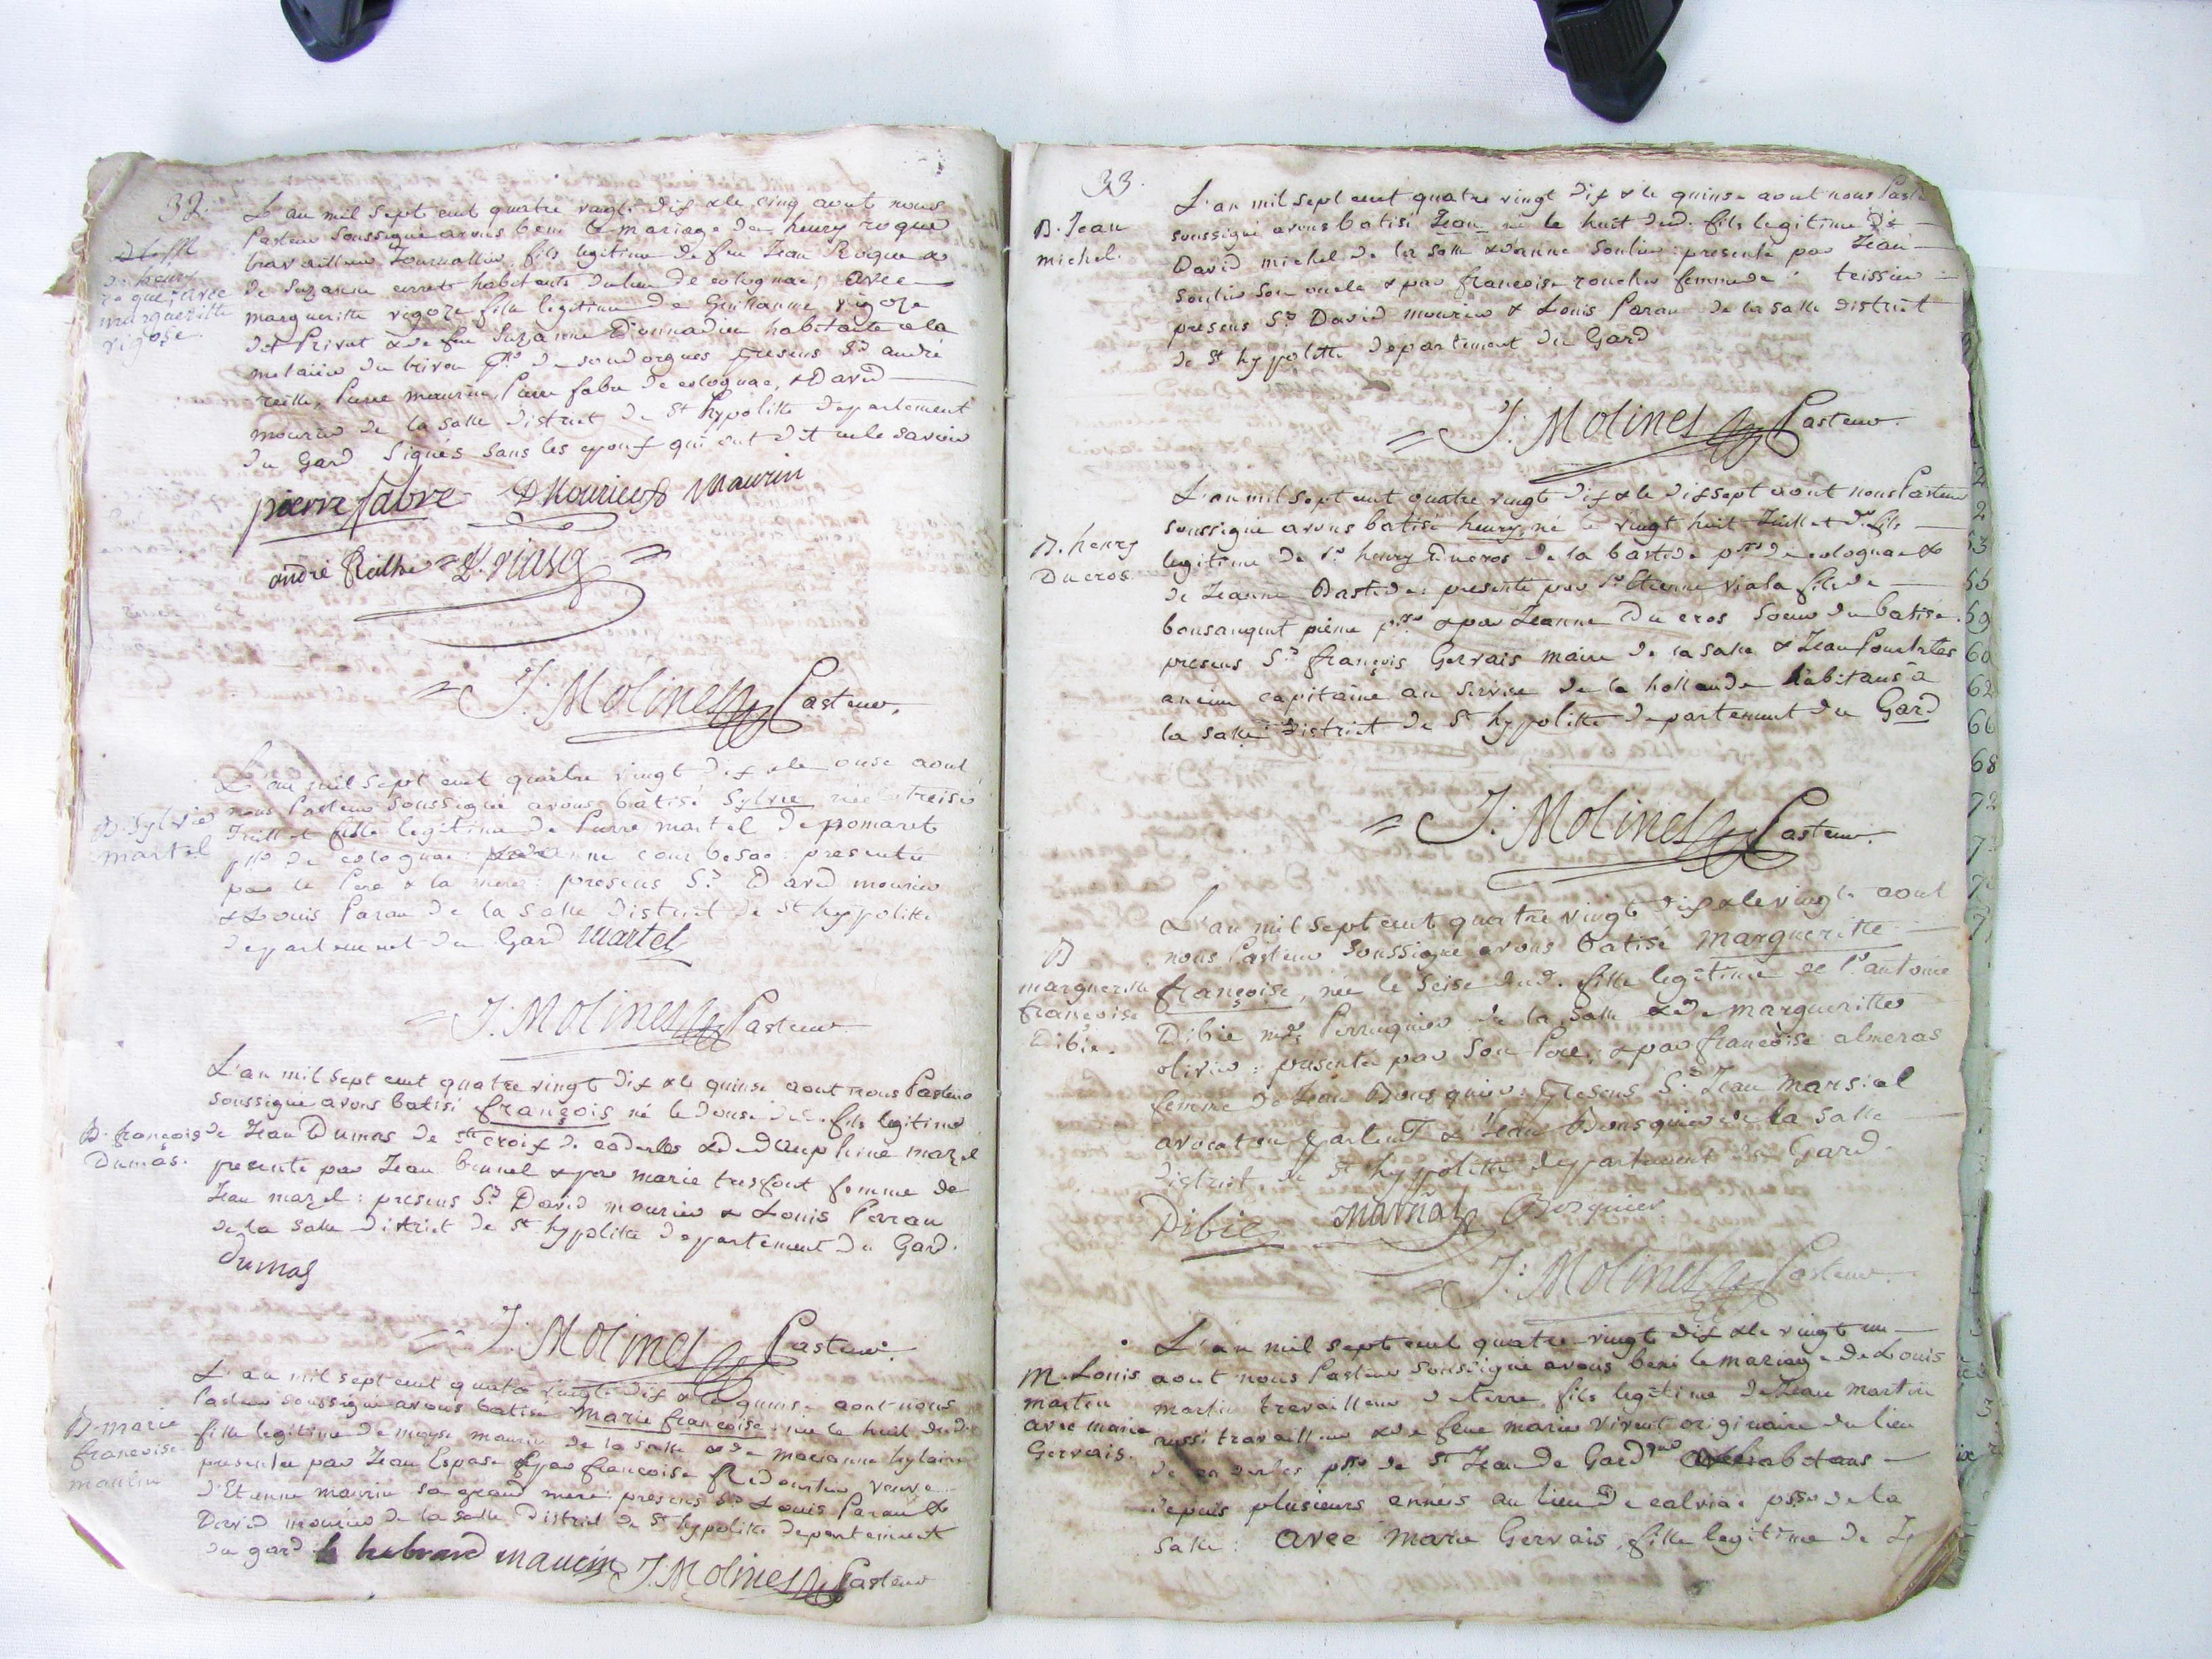 32.
L'an mil sept cent quatre vingt dix & le cinq aout nous
Pasteur Soussigné avons beni le mariage de henry roque
travailleur Journallier, fils legitime de feu Jean Roque &
de Suzanne habitants du lieu de colognac; avec
margueritte vigoze fille legitime de Guillaume vigoze
de Privat & de feu Suzanne Donnadieu habitante a la
de soudorgues presens Srs andré
reilhe, Pierre maurin, Pierre fabre de colognac, & David
mourier de la salle District de St hypolitte Departement
du Gard Signés Sans les epoux qui ont dit ne le savoir
de henry
roque avec
margueritte
vigoze.
pierre fabre D Mourier Maurin
andré Reilhe
J. Molines Pasteur.
L'an mil sept cent quatre vingt dix & le onse aout
nous Pasteur Soussigné avons batisé Sylvie née le treise
Juillet fille legitime de Pierre martel de pomaret
psse de colognac: anne courbesac: presentée
par le Pere & la mere: presens Srs David mourier
& Louis Paran de la Salle District de St hypolitte
departement du Gard Martel
B. Sylvie
martel
J. Molines Pasteur
L'an mil sept cent quatre vingt dix & le quinse aout nous Pasteur
soussigné avons batisé françois né le douse dud. fils legitime
de Jean Dumas de Ste croix de caderles & de Dauphine mazel
presenté par Jean brunel & par marie tresfont femme de
Jean mazel: presens Srs David mourier & Louis Perran
de la salle District de St hypolitte Departement du Gard.
B. françois
Dumas.
Dumas
J. Molines Pasteur.
L'an mil sept cent quatre vingt dix & le quinse aout nous
Pasteur soussigné avons batisé marie françoise née le huit dudit
fille legitime de moyse maurin de la salle & de marianne hylaire
presentée par Jean Espase & par francoise Redourtier veuve
d'Etienne maurin sa grand mere: presens Srs Louis Paran &
David mourier de la salle District de St hypolitte departement
du gard hebrard maurin J. Molines Pasteur
B. marie
françoise
maurin
33.
L'an mil sept cent quatre vingt dix & le quinse aout nous Paste
soussigné avons batisé Jean né le huit dud. fils legitime De
David michel de la salle & d'anne Soulier: presenté par Jean
Soulier son oncle & par francoise roucher femme de teissier
presens Srs David mourier & Louis Paran de la salle district
de St hypolitte departement du Gard
B. Jean
michel.
J. Molines Pasteur.
L'an mil sept cent quatre vingt dix & le dix sept aout nous Pasteur
soussigné avons batisé henry né le vingt huit Juillet dr. fils
legitime de Sr henry Ducros de la bastide psse de colognac &
de Jeanne Bastide: presenté par Sr Etienne viala fils de
bousanquet pieme psse & par Jeanne Ducros Soeur du batisé.
presens Srs françois Gervais maire de la salle & Jean Pourtales
ancien capitaine au service de la hollande habitans à
la salle District de St hypolitte departement du Gard
B. henry
Ducros
J. Molines Pasteur.
L'an mil sept cent quatre vingt dix & le vingt aout
nous Pasteur Soussigné avons batisé margueritte
françoise, née le seise dud. fille legitime de Sr antoine
Dibie md Perruquier de la Salle & de margueritte
olivier: presentée par son Pere, & par françoise almeras
femme de Jean Bousquier: presens Srs Jean Marsial
avocat en parlemt & Jean Bousquier de la Salle
district de St hypolitte departement du Gard.
B
margueritte
francoise
Dibie.
Dibie Marsial Bosquier
J. Molines Pasteur.
L'an mil sept cent quatre vingt dix & le vingt un
aout nous Pasteur Soussigné avons beni le mariage de Louis
martin travailleur de terre fils legitime de Jean martin
aussi travailleur & de feue marie vivent originaire du lieu
de caderles psse de St Jean de Gardque habitans
depuis plusieurs années au lieu de calviac psse de la
Salle: avec Marie Gervais, fille legitime de Je
M. Louis
martin
avec marie
Gervais.